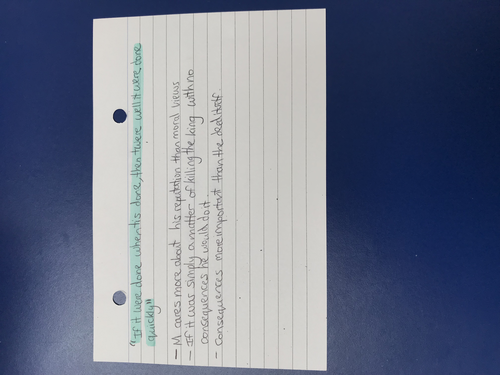 "If it were done when tis done, then twere well it were done
quickly"
- M cares more about his reputation than moral views
- If it was simply a matter of killing the king with no
consequences he would do it.
- Consequences more important than the deed itself.